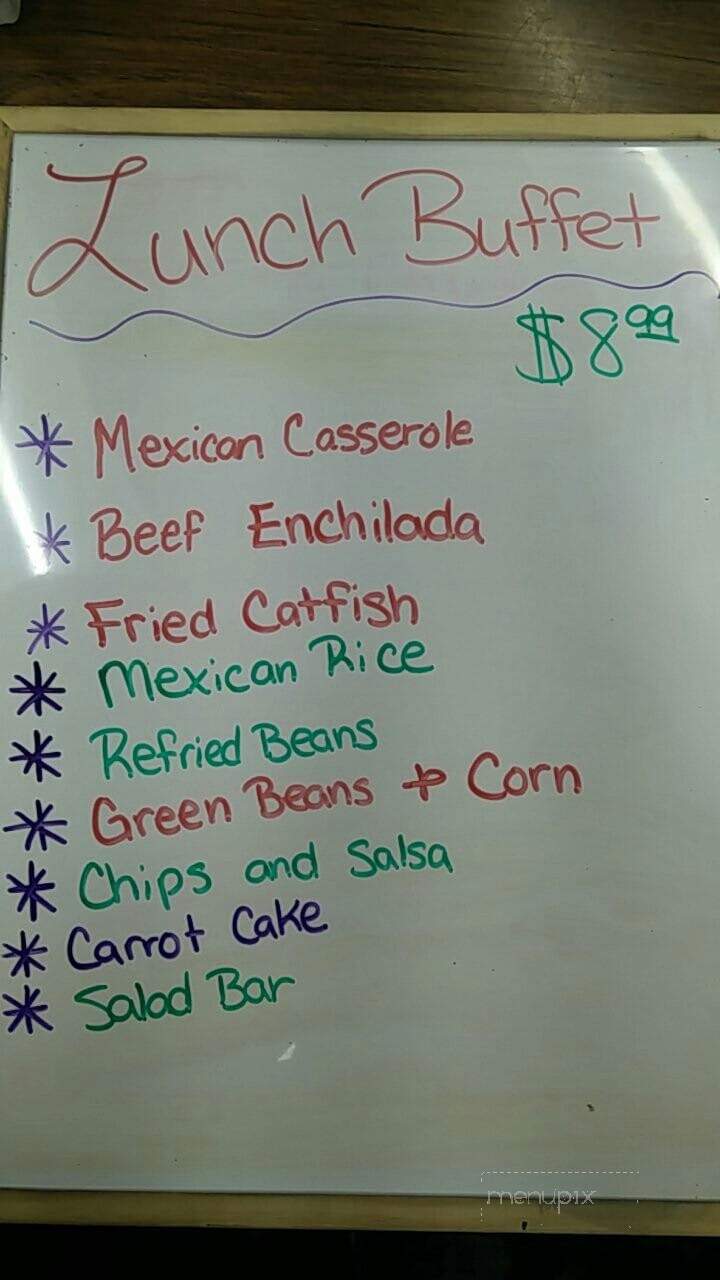 Lunch Buffet
$8.99
* Mexican Casserole
* Beef Enchilada
* Fried Catfish
* Mexican Rice
* Refried Beans
* Green Beans & Corn
* Chips and Salsa
* Carrot Cake
* Salad Bar
menupix